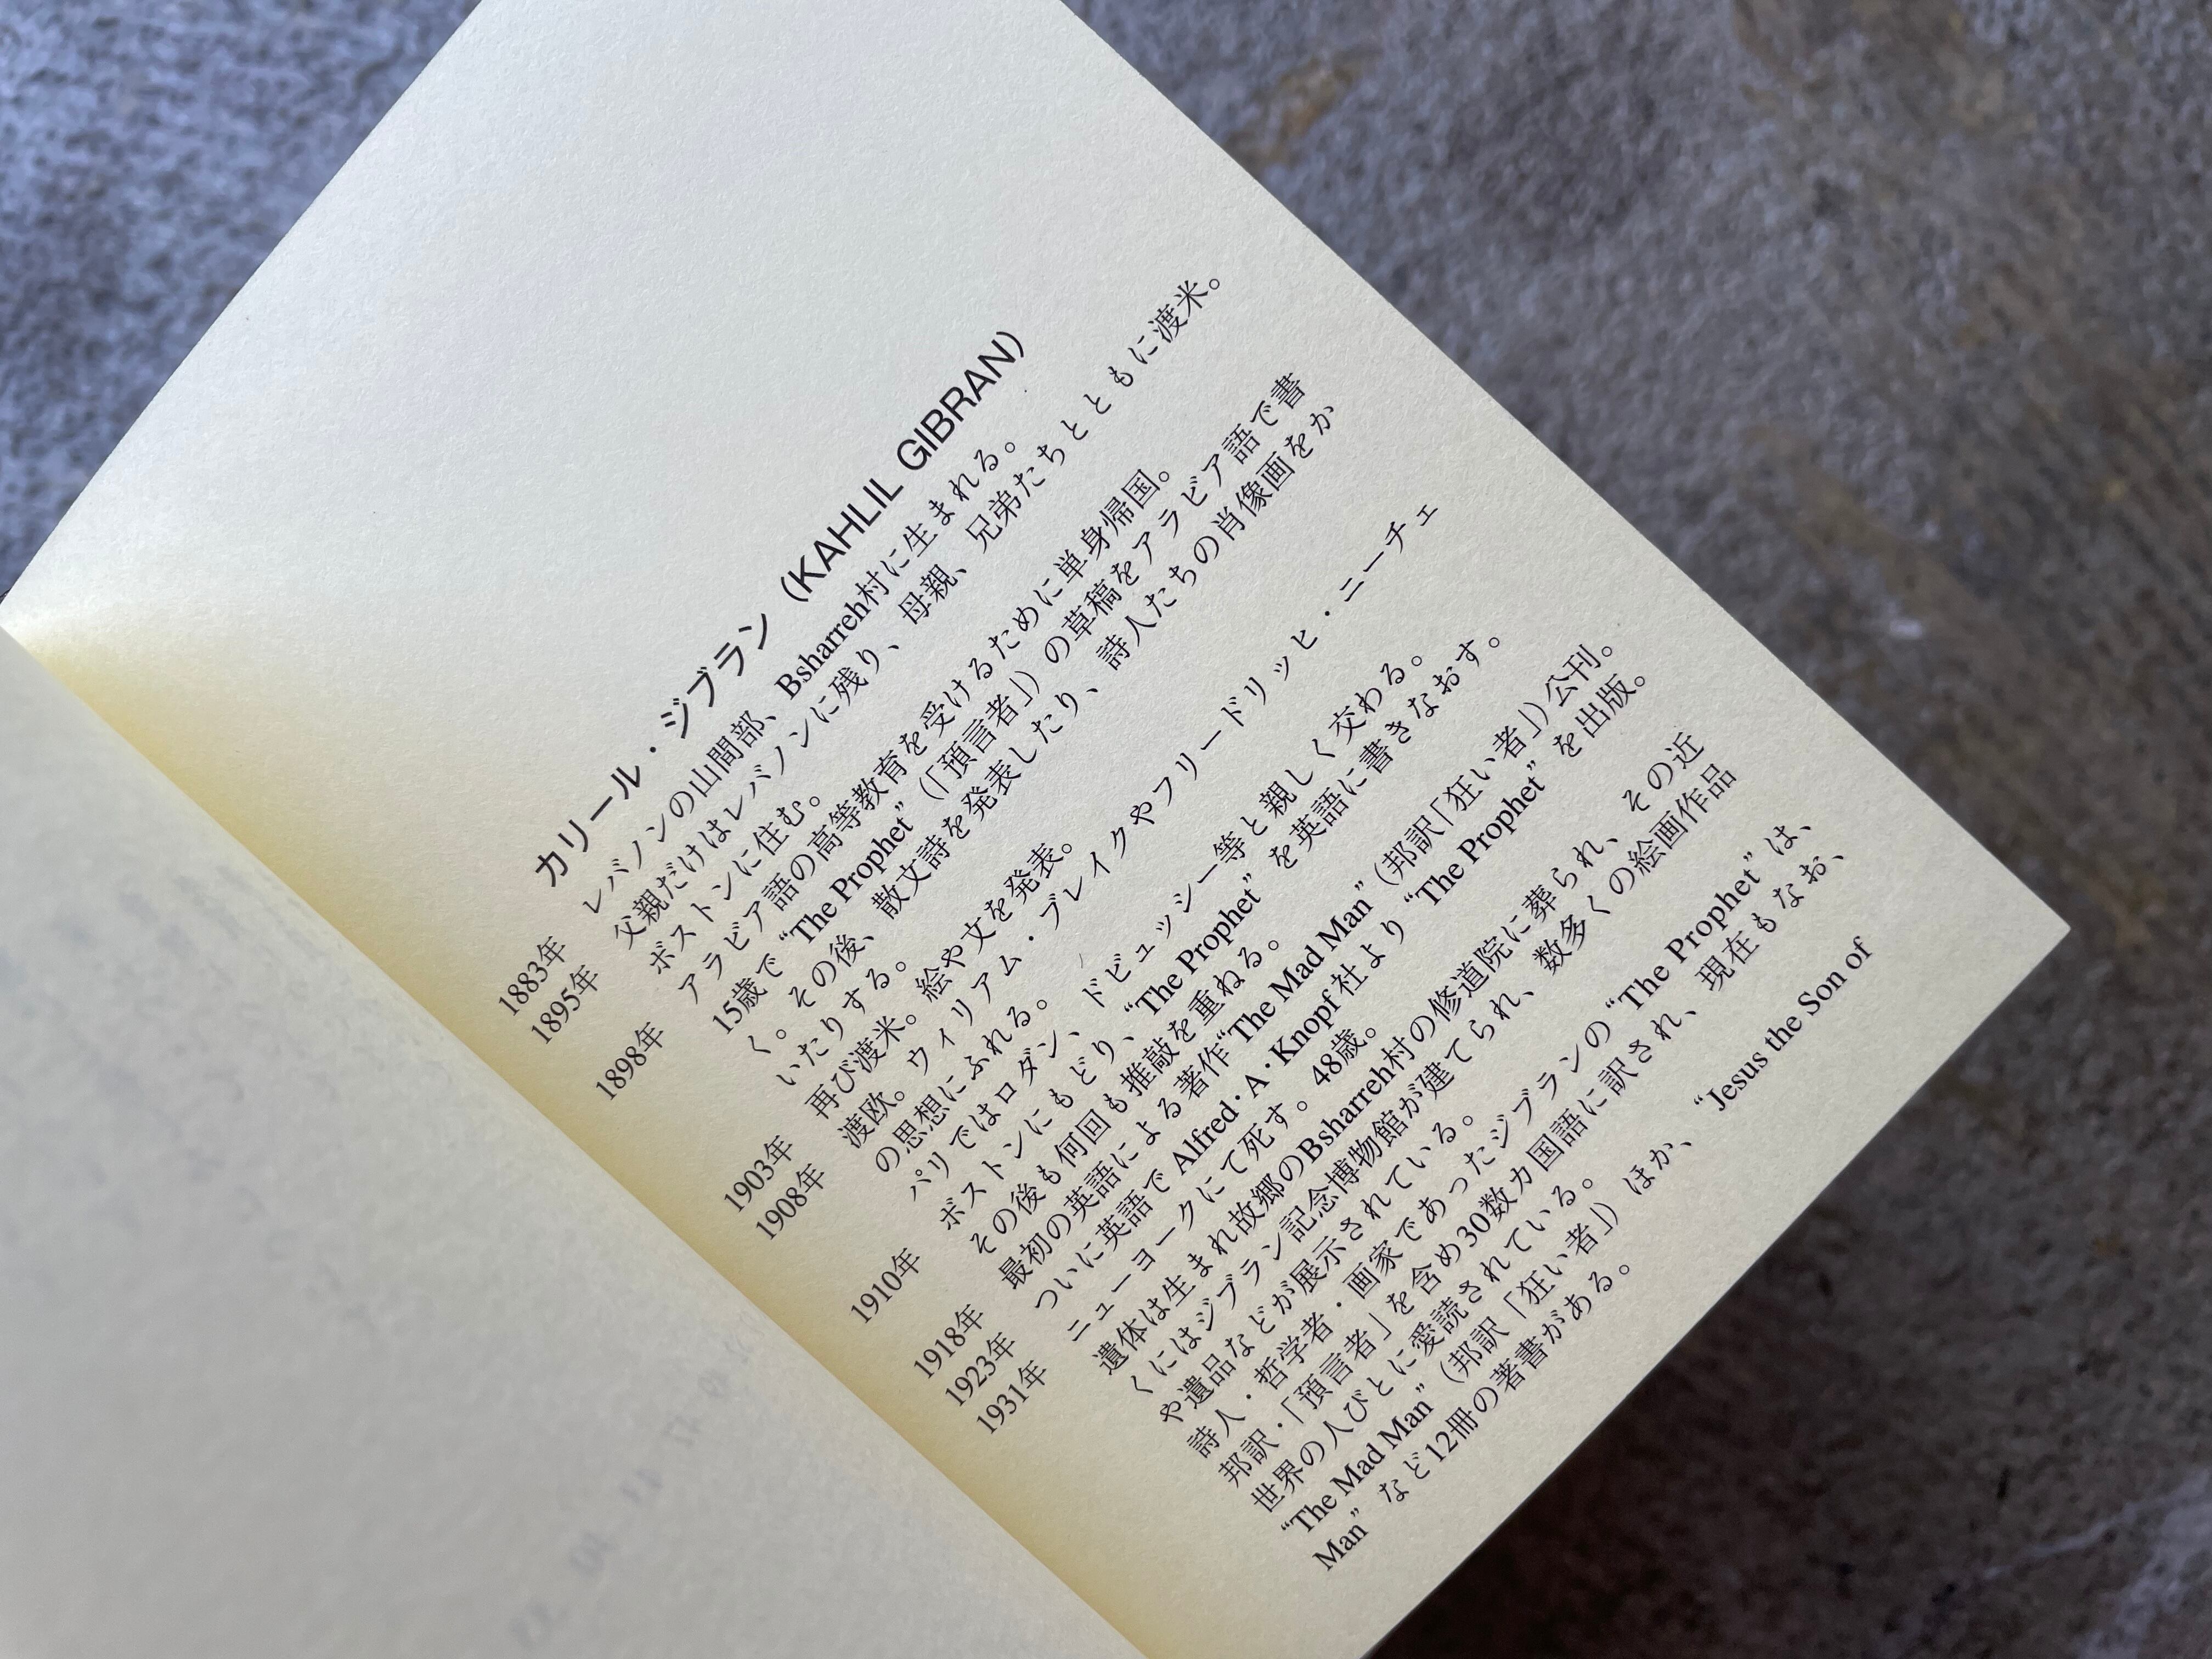 カリール・ジブラン（KAHLIL GIBRAN）
1883年 レバノンの山間部、Bsharreh村に生まれる。
1895年 父親だけはレバノンに残り、母親、兄弟たちとともに渡米。
ボストンに住む。
1898年 アラビア語の高等教育を受けるために単身帰国。
15歳で “The Prophet”（「預言者」）の草稿をアラビア語で書
く。その後、散文詩を発表したり、詩人たちの肖像画をか
いたりする。
1903年 再び渡米。絵や文を発表。
1908年 渡欧。ウィリアム・ブレイクやフリードリッヒ・ニーチェ
の思想にふれる。
パリではロダン、ドビュッシー等と親しく交わる。
1910年 ボストンにもどり、“The Prophet” を英語に書きなおす。
その後も何回も推敲を重ねる。
1918年 最初の英語による著作“The Mad Man”（邦訳「狂い者」）公刊。
1923年 ついに英語で Alfred・A・Knopf 社より “The Prophet” を出版。
1931年 ニューヨークにて死す。48歳。
遺体は生まれ故郷のBsharreh村の修道院に葬られ、その近
くにはジブラン記念博物館が建てられ、数多くの絵画作品
や遺品などが展示されている。
詩人・哲学者・画家であったジブランの “The Prophet” は、
邦訳・「預言者」を含め30数カ国語に訳され、現在もなお、
世界の人びとに愛読されている。
“The Mad Man”（邦訳「狂い者」）ほか、“Jesus the Son of
Man” など12冊の著書がある。